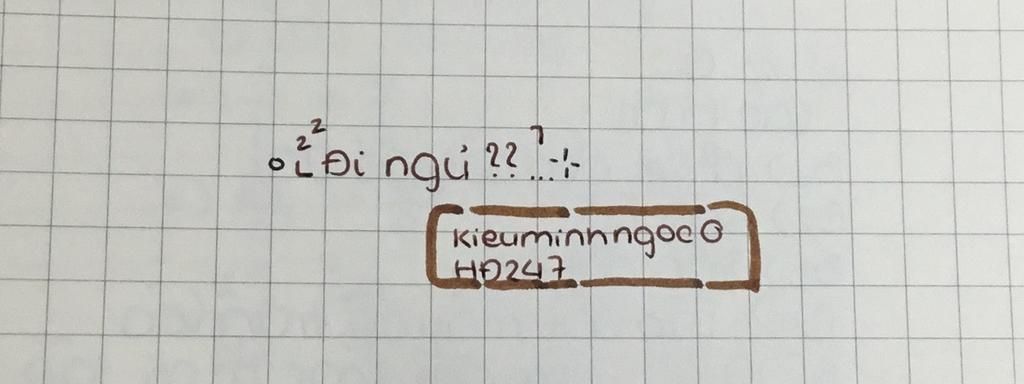 Đi ngủ ??
kieuminhngoc
HĐ247